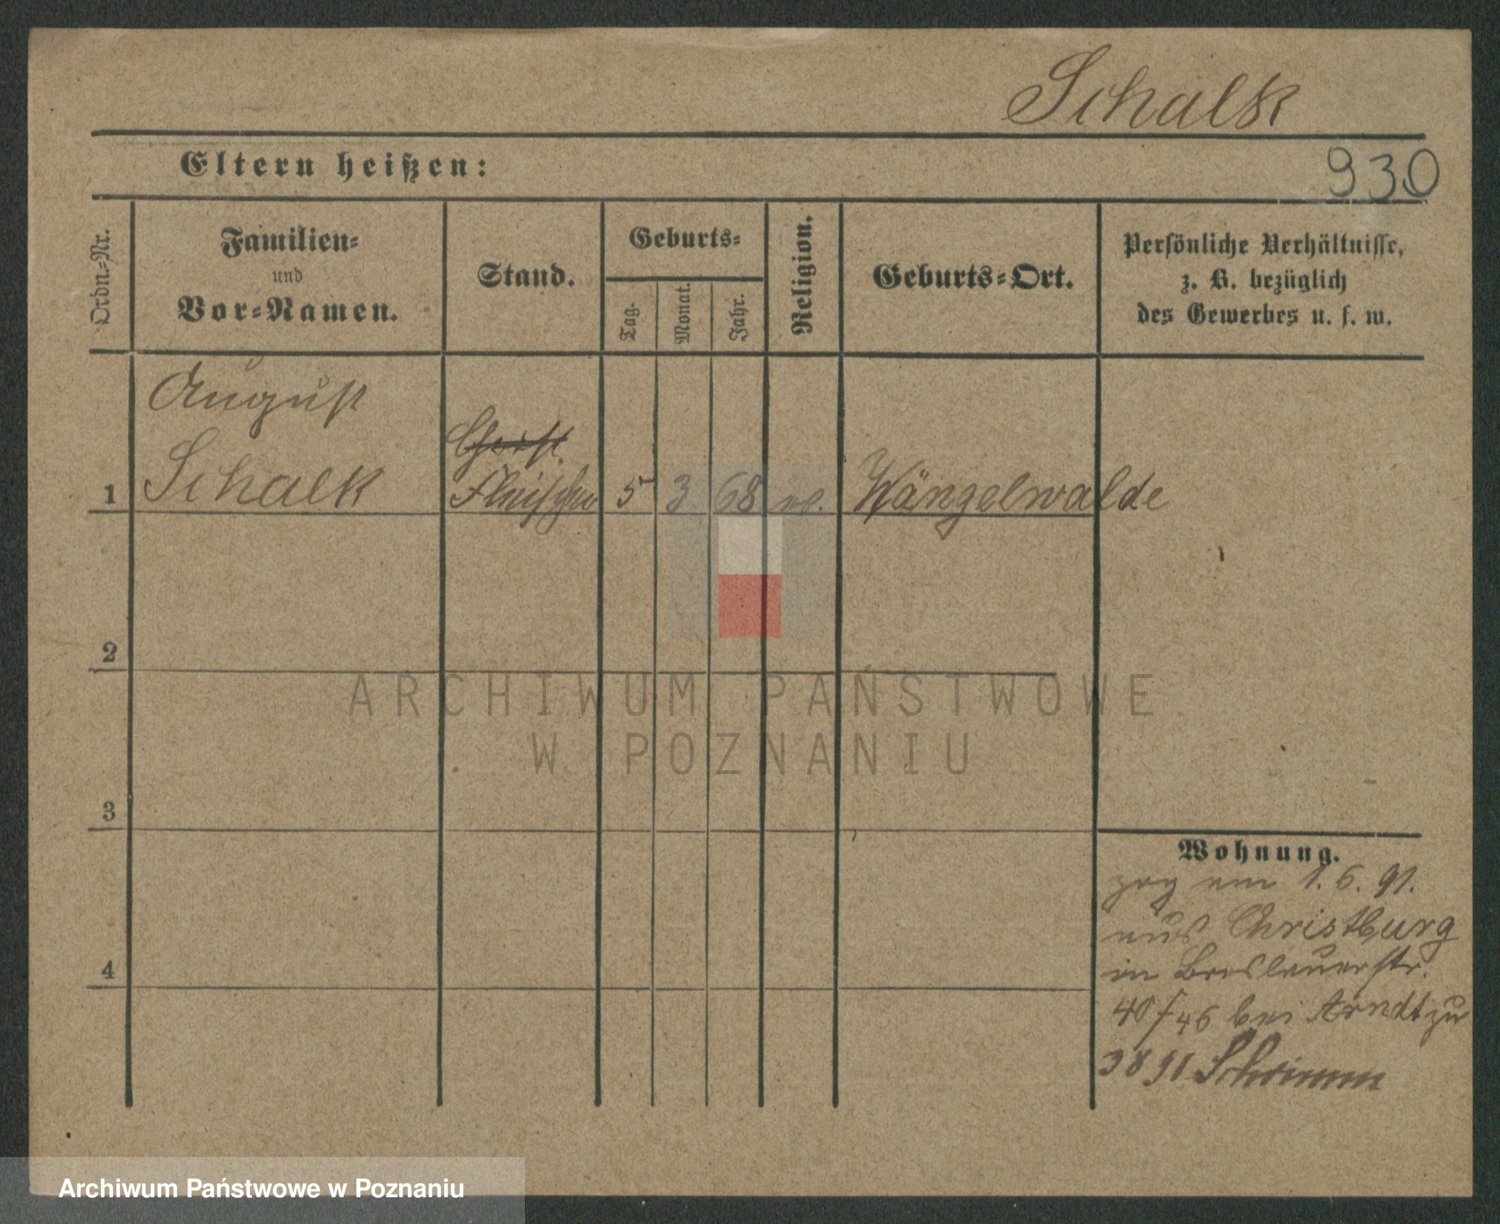 Schalk
Eltern heißen:
930
Ordn.-Nr.
Familien-
und
Vor-Namen.
Stand.
Geburts-
Tag.
Monat.
Jahr.
Religion.
Geburts-Ort.
Persönliche Verhältnisse,
z. B. bezüglich
des Gewerbes u. s. w.
August
Schalk
Fleischer
1
5
3
68
Wängelwalde
2
ARCHIWUM PAŃSTWOWE
W POZNANIU
3
Wohnung.
zog am 1. 6. 91.
aus Christburg
4
in Breslauerstr.
40/46 bei Arndt zu
3 8 91 Schrimm
Archiwum Państwowe w Poznaniu